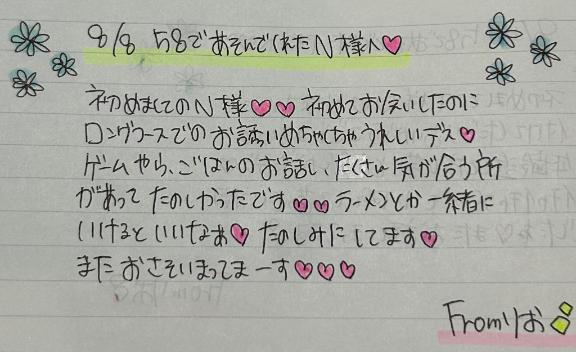 8/8 58であそんでくれたN様へ♡
初めましてのN様♡♡ 初めてお会いしたのに
ロングコースでのお誘いめちゃくちゃうれしいデス♡
ゲームやら、ごはんのお話し、たくさん気が合う所
があって たのしかったです♡♡ラーメンとか一緒に
いけるといいなぁ♡ たのしみにしてます♡
また おさそいまってまーす♡♡♡
Fromりお